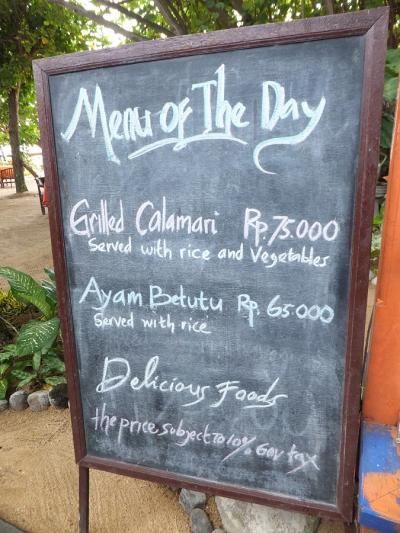 Menu of The Day
Grilled Calamari Rp. 75.000
Served with rice and Vegetables
Ayam Betutu Rp. 65.000
Served with rice
Delicious Foods
the price subject To 10% Gov tax